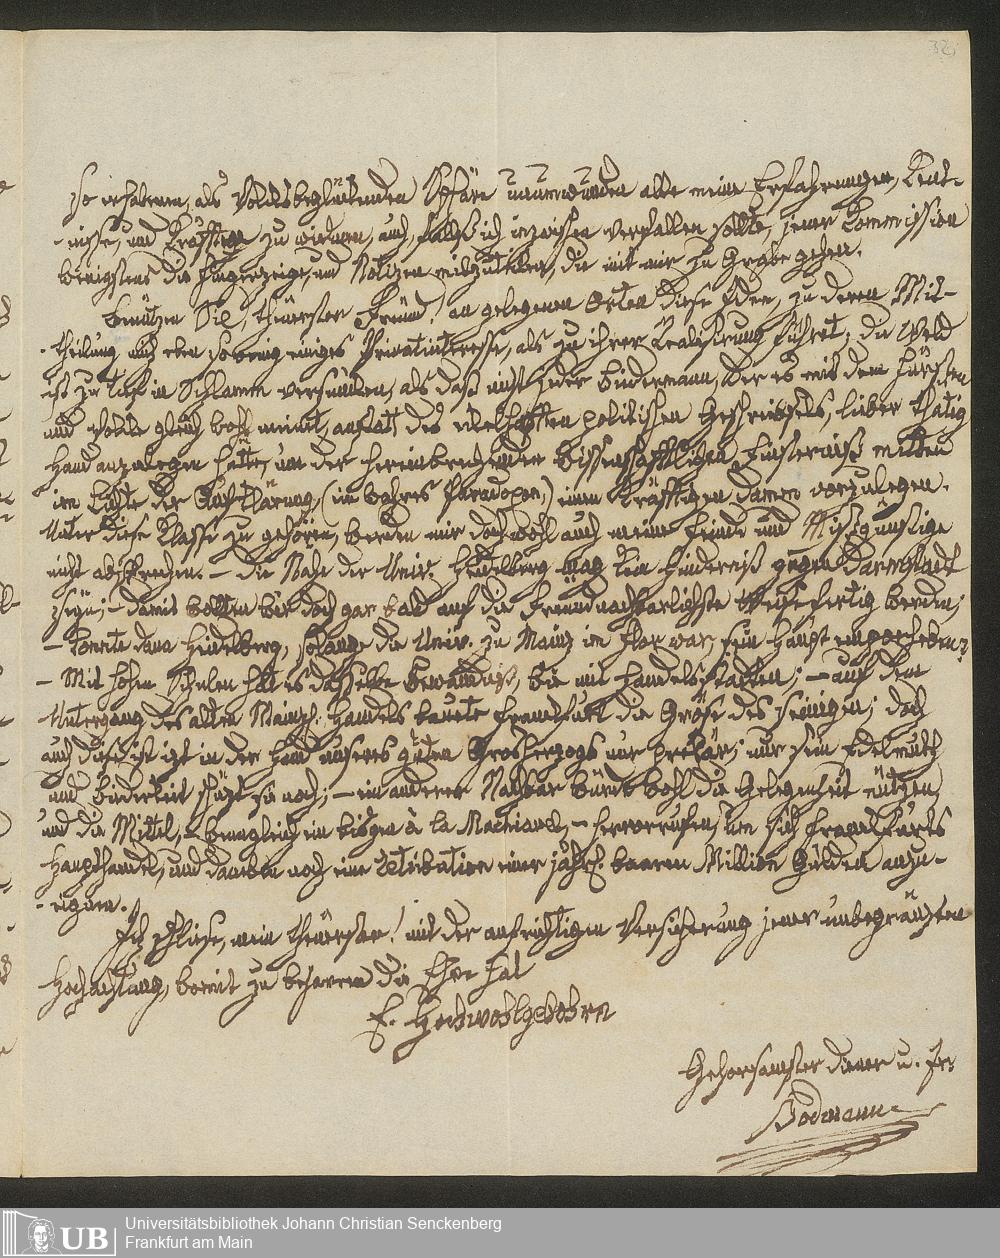 so erhabenen, als Volksbeglükenden Sphäre unumwunden alle meine Erfahrungen, Kent-
-nisse, und Kräfften zu widmen, auch, falls ich inzwischen verfallen sollte, jener Commission
wenigstens die Fingerzeige, und Notizen mitzutheilen, die mit mir zu Grabe gehen.
Benüzen Sie, theuerster Freund! an gelegenen Orten diese Idee, zu deren Mit-
-theilung mich eben so wenig einiges Privatinteresse, als zu ihrer Realisirung führet; die Welt
ist zu tief in Schlamm versunken, als daß nicht jeder Biedermann, der es mit dem Fürsten
und Volke gleich wohl meint, anstatt des ekelhafften politischen Geschreibsels, lieber thätig
Hand anzulegen hätte, um der hereinbrechenden Wissenschafftlichen Finsterniß mitten
im Lichte der Aufklärung, (ein wahres Paradoxon,) einen kräfftigen Damm vorzulegen.
Unter diese Klasse zu gehören, werden mir doch wohl auch meine Feinde und Missgünstige
nicht absprechen. – die Nähe der Univ. Heidelberg mag kein Hinderniß gegen Darmstadt
seyn; – damit wollten wir doch gar bald auf die freundnachbarlichste Weise fertig werden;
– konnte dann Heidelberg, solange die Univ. zu Mainz im Flor war, sein Haupt emporheben?
– Mit hohen Schulen hat es dasselbe Bewandniß, wie mit Handelsstädten; – auf dem
Untergang des alten Mainz. Handels baute Frankfurt die Gröse des seinigen; doch
auch diese ist izt in der Hand unseres guten Grosherzogs nur prekär; nur sein Edelmuth
und Biederkeit schüzt sie noch; – ein anderer Nachbar würde wohl die Gelegenheit nützen,
und die Mittel, – wenngleich ein bisgen à la Machiavel, – hervorrufen, um sich Frankfurts
Haupthandel, und daneben noch eine Retribution einer jährl. baaren Million Gulden anzu-
-eignen.
Ich schliese, mein theuerster! mit der aufrichtigen Versicherung jener unbegränzten
Hochachtung, womit zu beharren die Ehre hat
E. Hochwohlgebohrn
Gehorsamster Diener u. Fr.
Bodmann
Universitätsbibliothek Johann Christian Senckenberg
Frankfurt am Main
UB